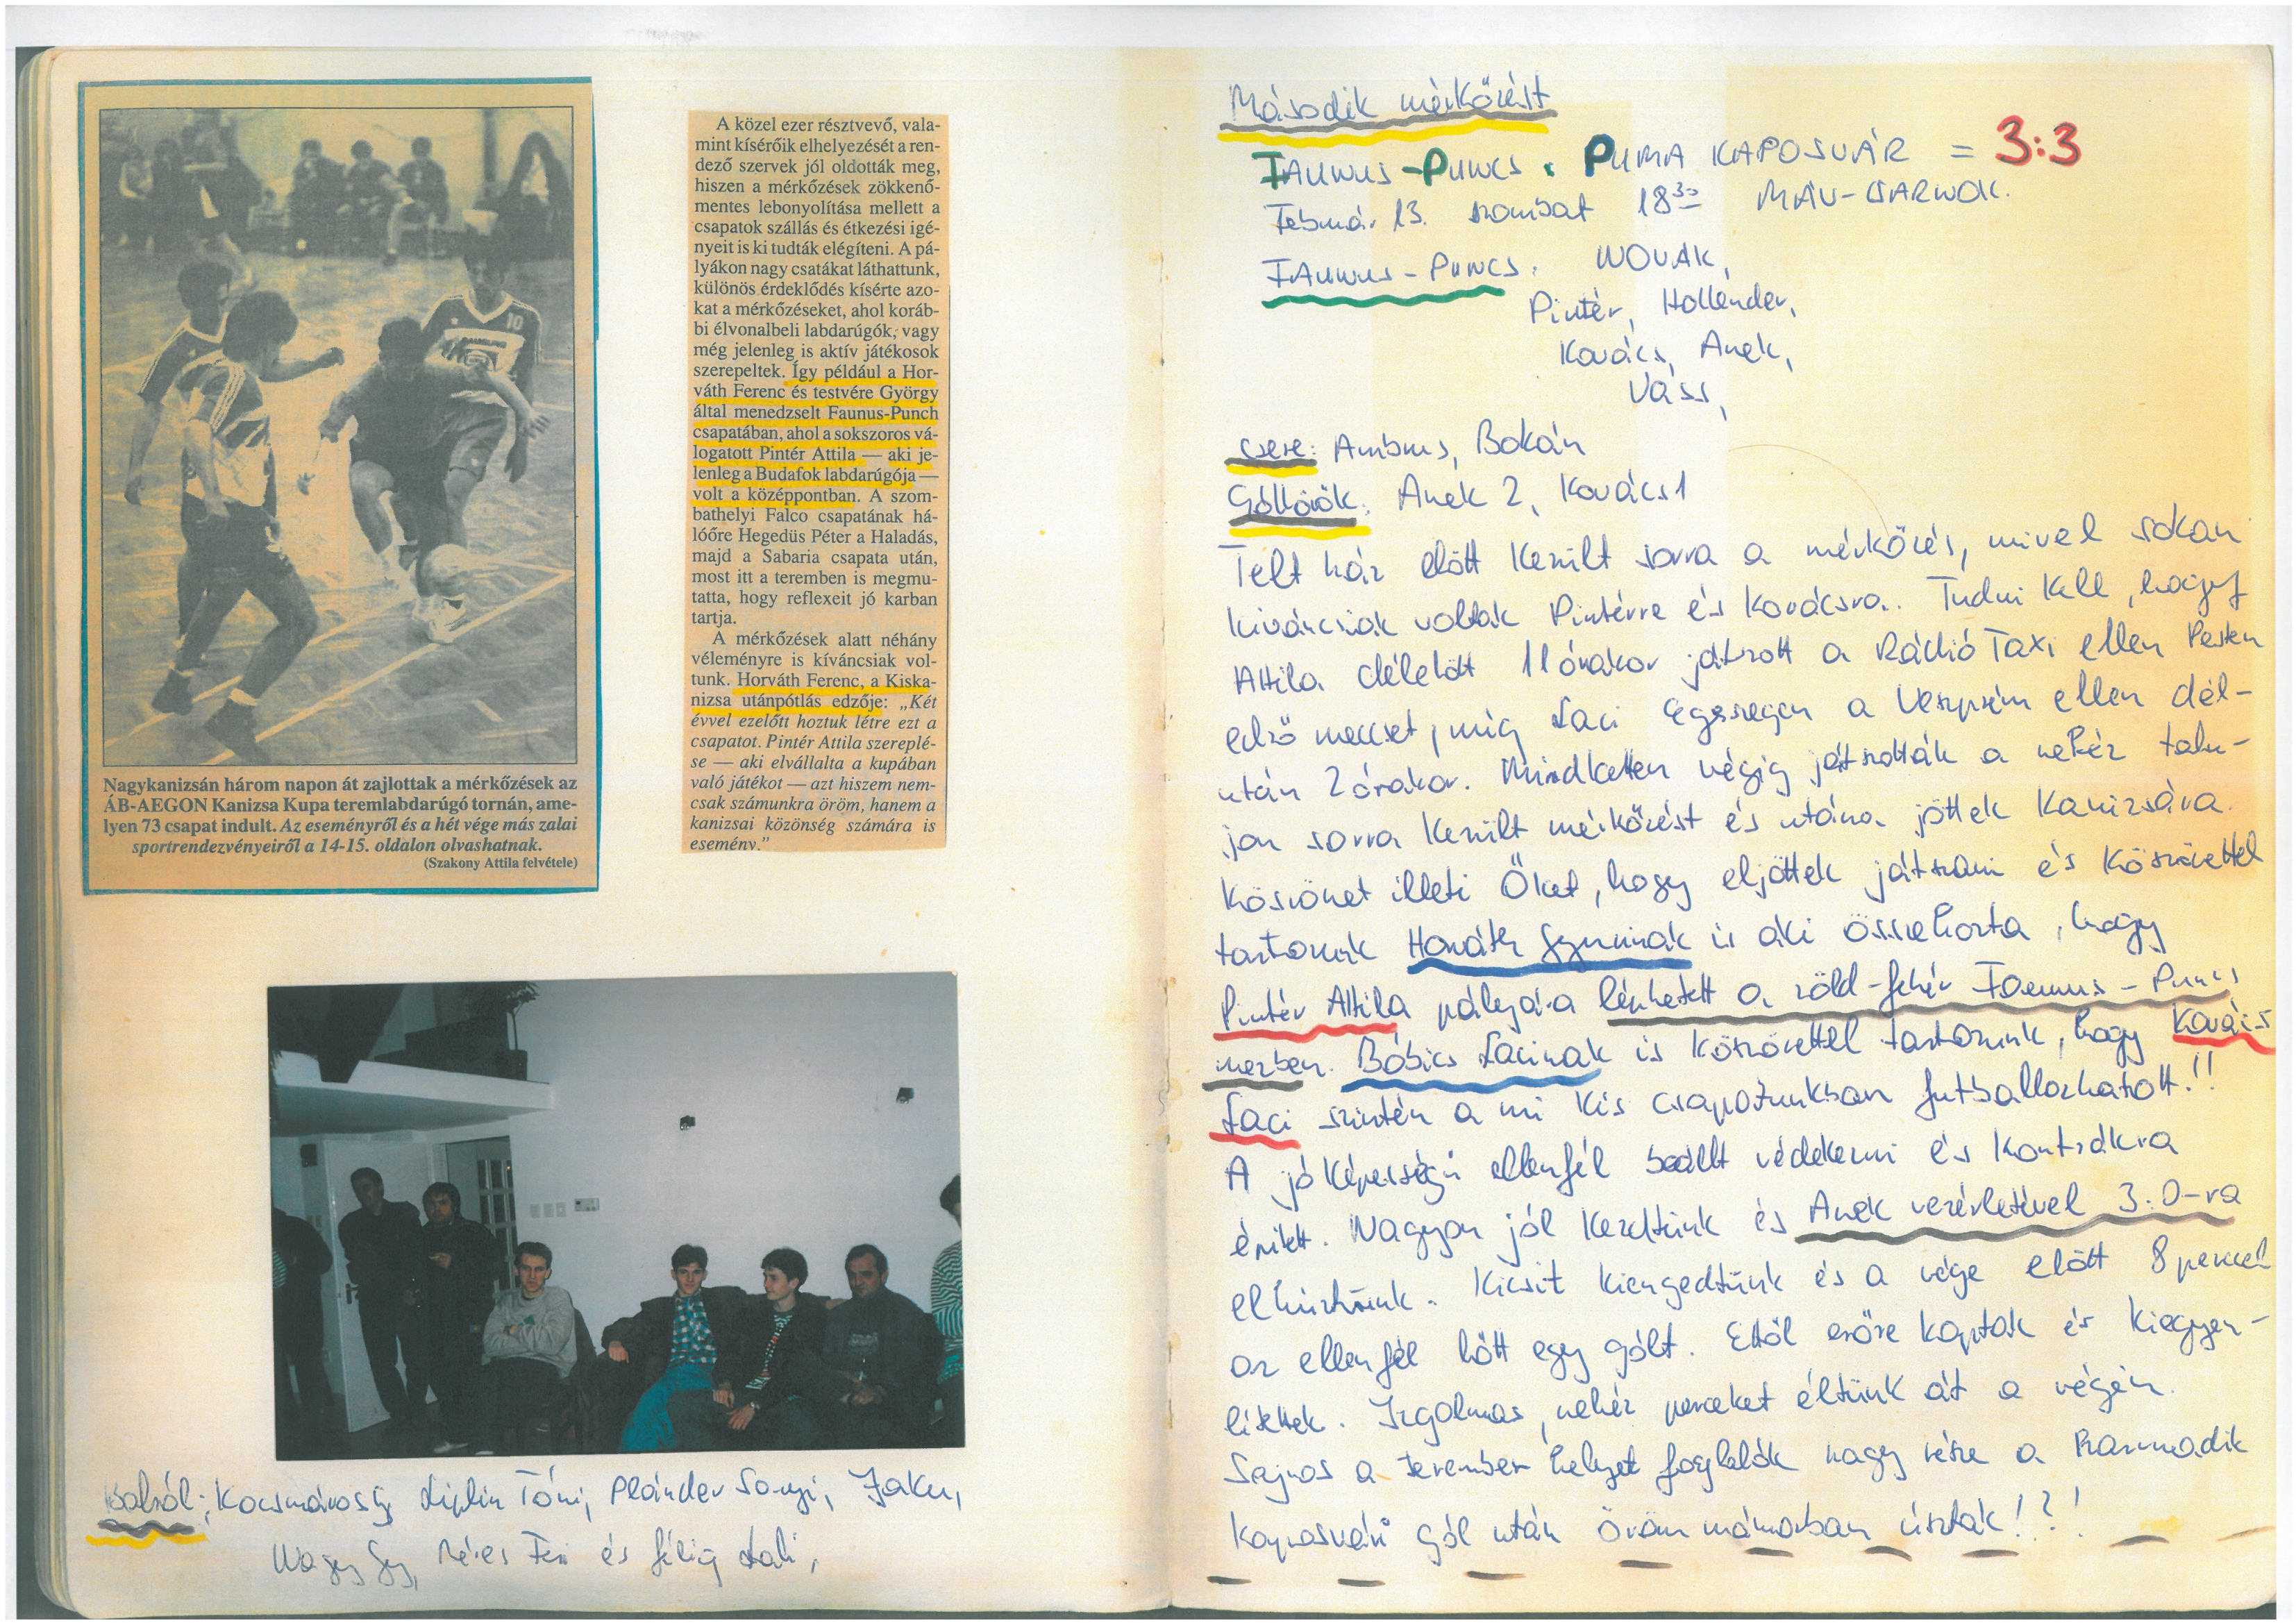 Nagykanizsán három napon át zajlottak a mérkőzések az
ÁB-AEGON Kanizsa Kupa teremlabdarúgó tornán, ame-
lyen 73 csapat indult. Az eseményről és a hét vége más zalai
sportrendezvényeiről a 14-15. oldalon olvashatnak.
(Szakony Attila felvétele)
A közel ezer résztvevő, vala-
mint kísérőik elhelyezését a ren-
dező szervek jól oldották meg,
hiszen a mérkőzések zökkenő-
mentes lebonyolítása mellett a
csapatok szállás és étkezési igé-
nyeit is ki tudták elégíteni. A pá-
lyákon nagy csatákat láthattunk,
különös érdeklődés kísérte azo-
kat a mérkőzéseket, ahol koráb-
bi élvonalbeli labdarúgók, vagy
még jelenleg is aktív játékosok
szerepeltek. Így például a Hor-
váth Ferenc és testvére György
által menedzselt Faunus-Punch
csapatában, ahol a sokszoros vá-
logatott Pintér Attila — aki je-
lenleg a Budafok labdarúgója —
volt a középpontban. A szom-
bathelyi Falco csapatának há-
lóőre Hegedüs Péter a Haladás,
majd a Sabaria csapata után,
most itt a teremben is megmu-
tatta, hogy reflexeit jó karban
tartja.
A mérkőzések alatt néhány
véleményre is kíváncsiak vol-
tunk. Horváth Ferenc, a Kiska-
nizsa utánpótlás edzője: „Két
évvel ezelőtt hoztuk létre ezt a
csapatot. Pintér Attila szereplé-
se — aki elvállalta a kupában
való játékot — azt hiszem nem-
csak számunkra öröm, hanem a
kanizsai közönség számára is
esemény."
10
Balról: Kocsmáros Gy, Liplin Tóni, Plánder Sanyi, Jaku,
Nagy Gy, Feri és félig Lali,
Második mérkőzést
FAUNUS-PUNCS : PUMA KAPOSVÁR = 3:3
Február 13. szombat 18 30 MÁV-CSARNOK.
FAUNUS-PUNCS: NOVÁK,
Pintér, Hollender,
Kovács, Anek,
Vass,
csere: Ambrus, Bokán
Góllövők: Anek 2, Kovács 1
Telt ház előtt került sorra a mérkőzés, mivel sokan
kiváncsiak voltak Pintérre és Kovácsra. Tudni kell, hogy
Attila délelőtt 11 órakor játszott a Rádió Taxi ellen Pesten
edző meccset, míg Laci Egerszegen a Veszprém ellen dél-
után 2 órakor. Mindketten végig játszották a nehéz tala-
jon sorra került mérkőzést és utána jöttek Kanizsára.
Köszönet illeti Őket, hogy eljöttek játszani és köszönettel
tartozunk Horváth Gyurinak is aki összehozta, hogy
Pintér Attila pályára léphetett a zöld-fehér Faunus-Puncs
mezben. Bóbics Lacinak is köszönettel tartozunk, hogy Kovács
Laci szintén a mi kis csapatunkban futballozhatott!!
A jó képességű ellenfél beállt védekezni és kontrákra
épített. Nagyon jól kezdtünk és Anek vezérletével 3:0-ra
elhúztunk. Kicsit kiengedtünk és a vége előtt 8 perccel
az ellenfél lőtt egy gólt. Ettől erőre kaptak és kiegyen-
lítettek. Irgalmas, nehéz perceket éltünk át a végén.
Sajnos a teremben helyet foglalók nagy része a harmadik
kaposvári gól után öröm mámorban úsztak!?!